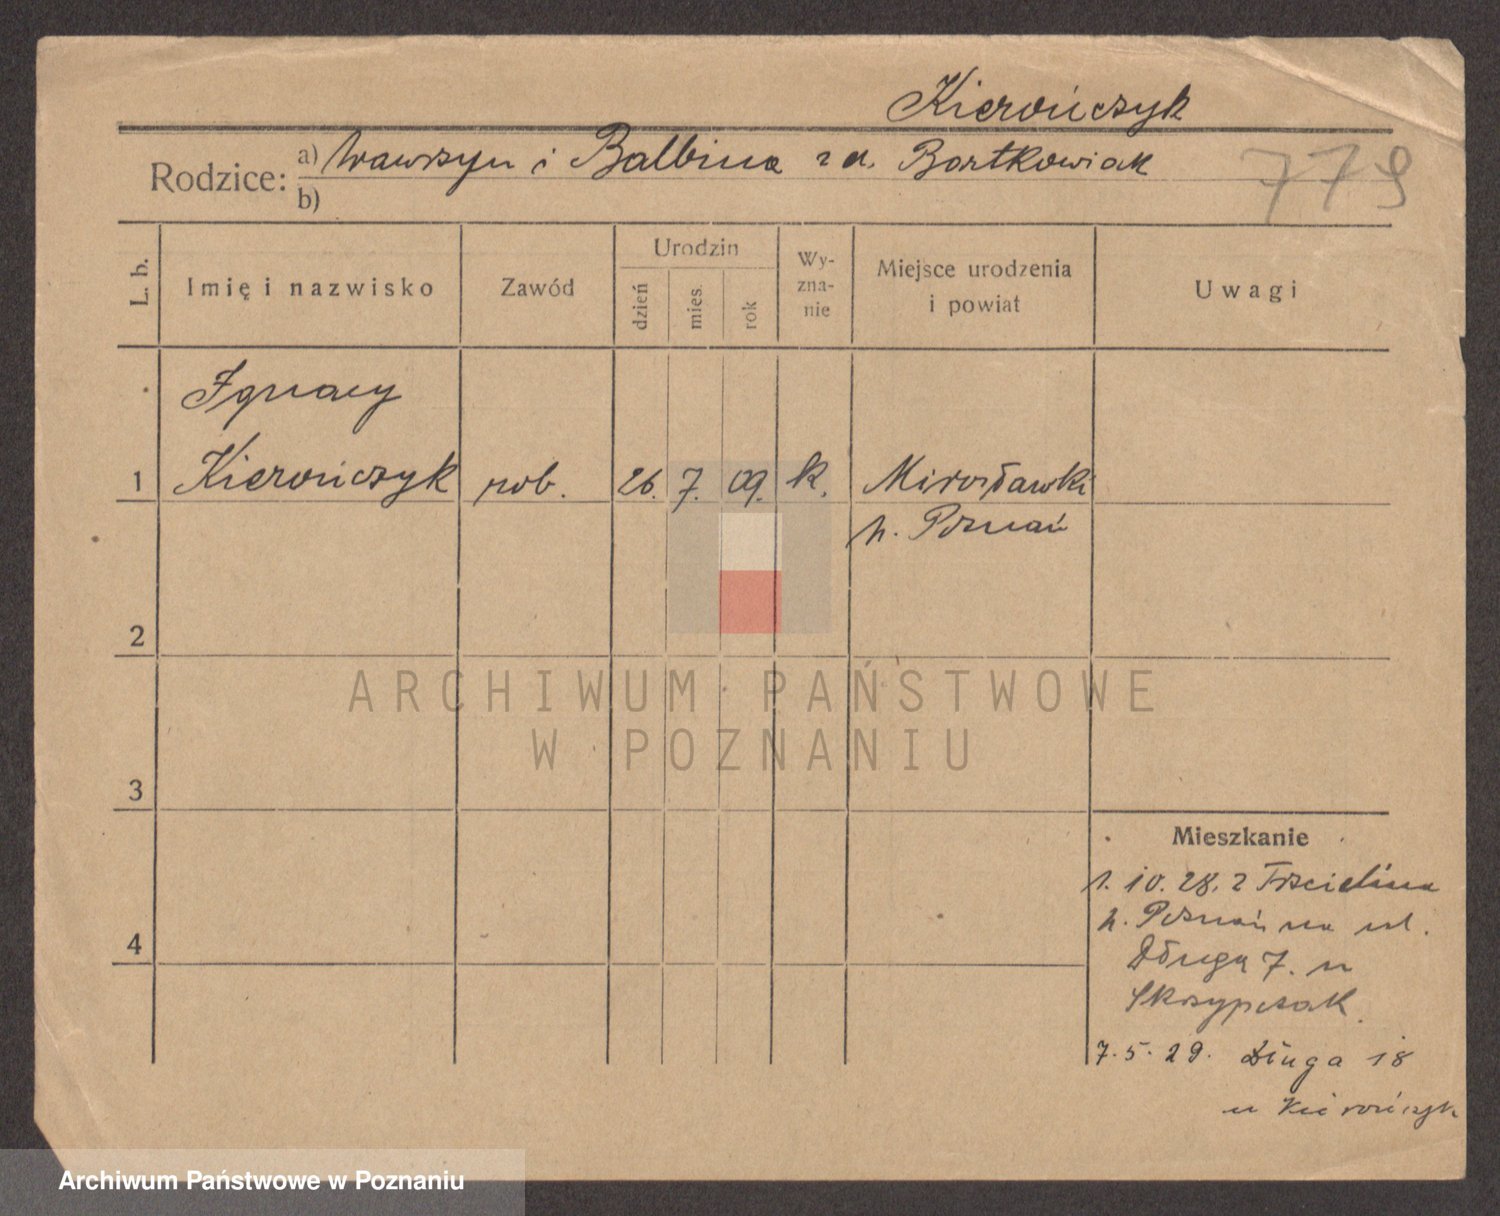 Kierończyk
Rodzice: a) Wawrzyn i Balbina z d. Bartkowiak
b)
779
L. b.
Imię i nazwisko
Zawód
Urodzin
dzień
mies.
rok
Wy-
zna-
nie
Miejsce urodzenia
i powiat
Uwagi
Ignacy
1 Kierończyk rob. 26. 7. 09. k. Mirosławki
p. Poznań
2
ARCHIWUM PAŃSTWOWE
W POZNANIU
3
4
Mieszkanie
1. 10. 28. z Trzcielina
p. Poznań na ul.
Długą 7. u
Skrzypczak
7. 5. 29. Długa 18
u Kierończyk
Archiwum Państwowe w Poznaniu